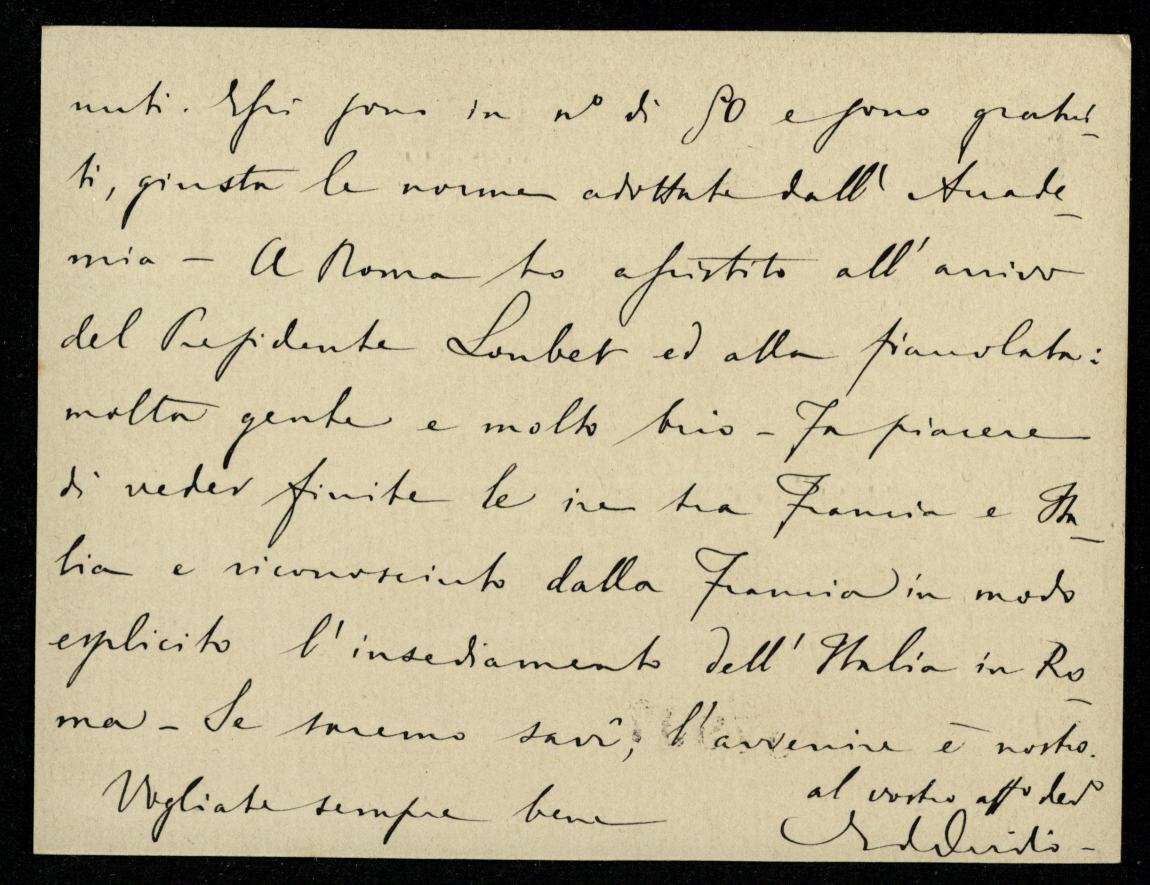 nuti. Essi sono in nº di 50 e sono gratui-
ti, giusta le norme adottate dall' Accade-
mia - A Roma ho assistito all'arrivo
del Presidente Loubet ed alla fiaccolata:
molta gente e molto brio - Fa piacere
di veder finite le ire tra Francia e Ita-
lia e riconosciuto dalla Francia in modo
esplicito l'insediamento dell'Italia in Ro-
ma - Se saremo savî, l'avvenire è nostro.
Vogliate sempre bene
al vostro affº devº